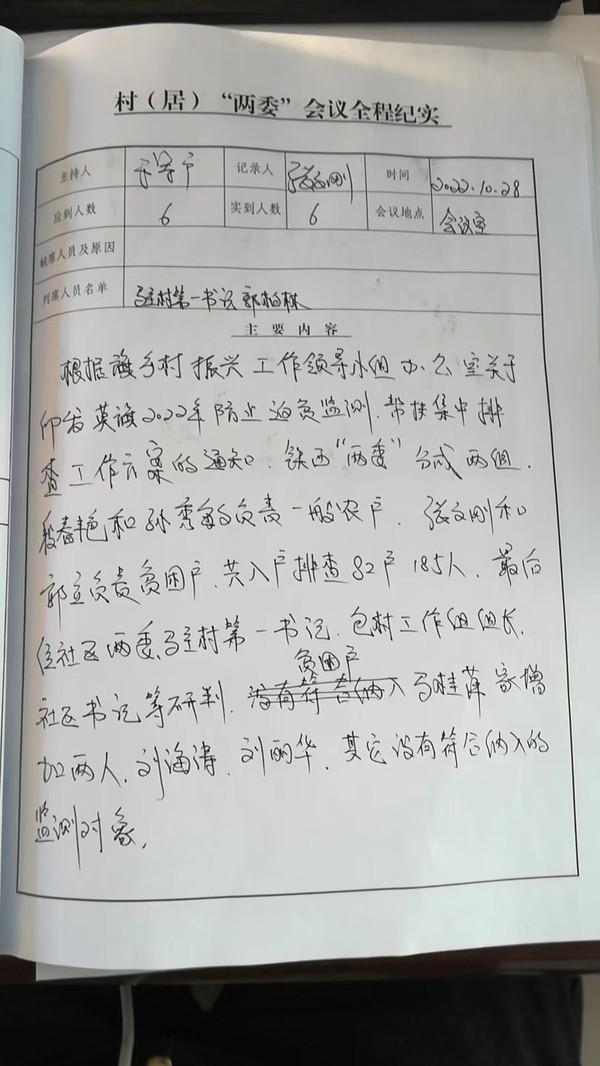 村（居）“两委”会议全程纪实
主持人 记录人 张文刚 时间 2022.10.28
应到人数 6 实到人数 6 会议地点 会议室
缺席人员及原因
列席人员名单 驻村第一书记郭柏林
主要内容
根据旗乡村振兴工作领导小组办公室关于
印发莫旗2022年防止返贫监测.帮扶集中排
查工作方案的通知.铁西“两委”分成两组.
段春艳和孙秀敏负责一般农户.张文刚和
郭立负责贫困户.共入户排查82户185人.最后
经社区两委、驻村第一书记.包村工作组组长.
贫困户
社区书记等研判.没有符合纳入马桂萍家增
加两人.刘海涛.刘丽华.其它没有符合纳入的
监测对象.